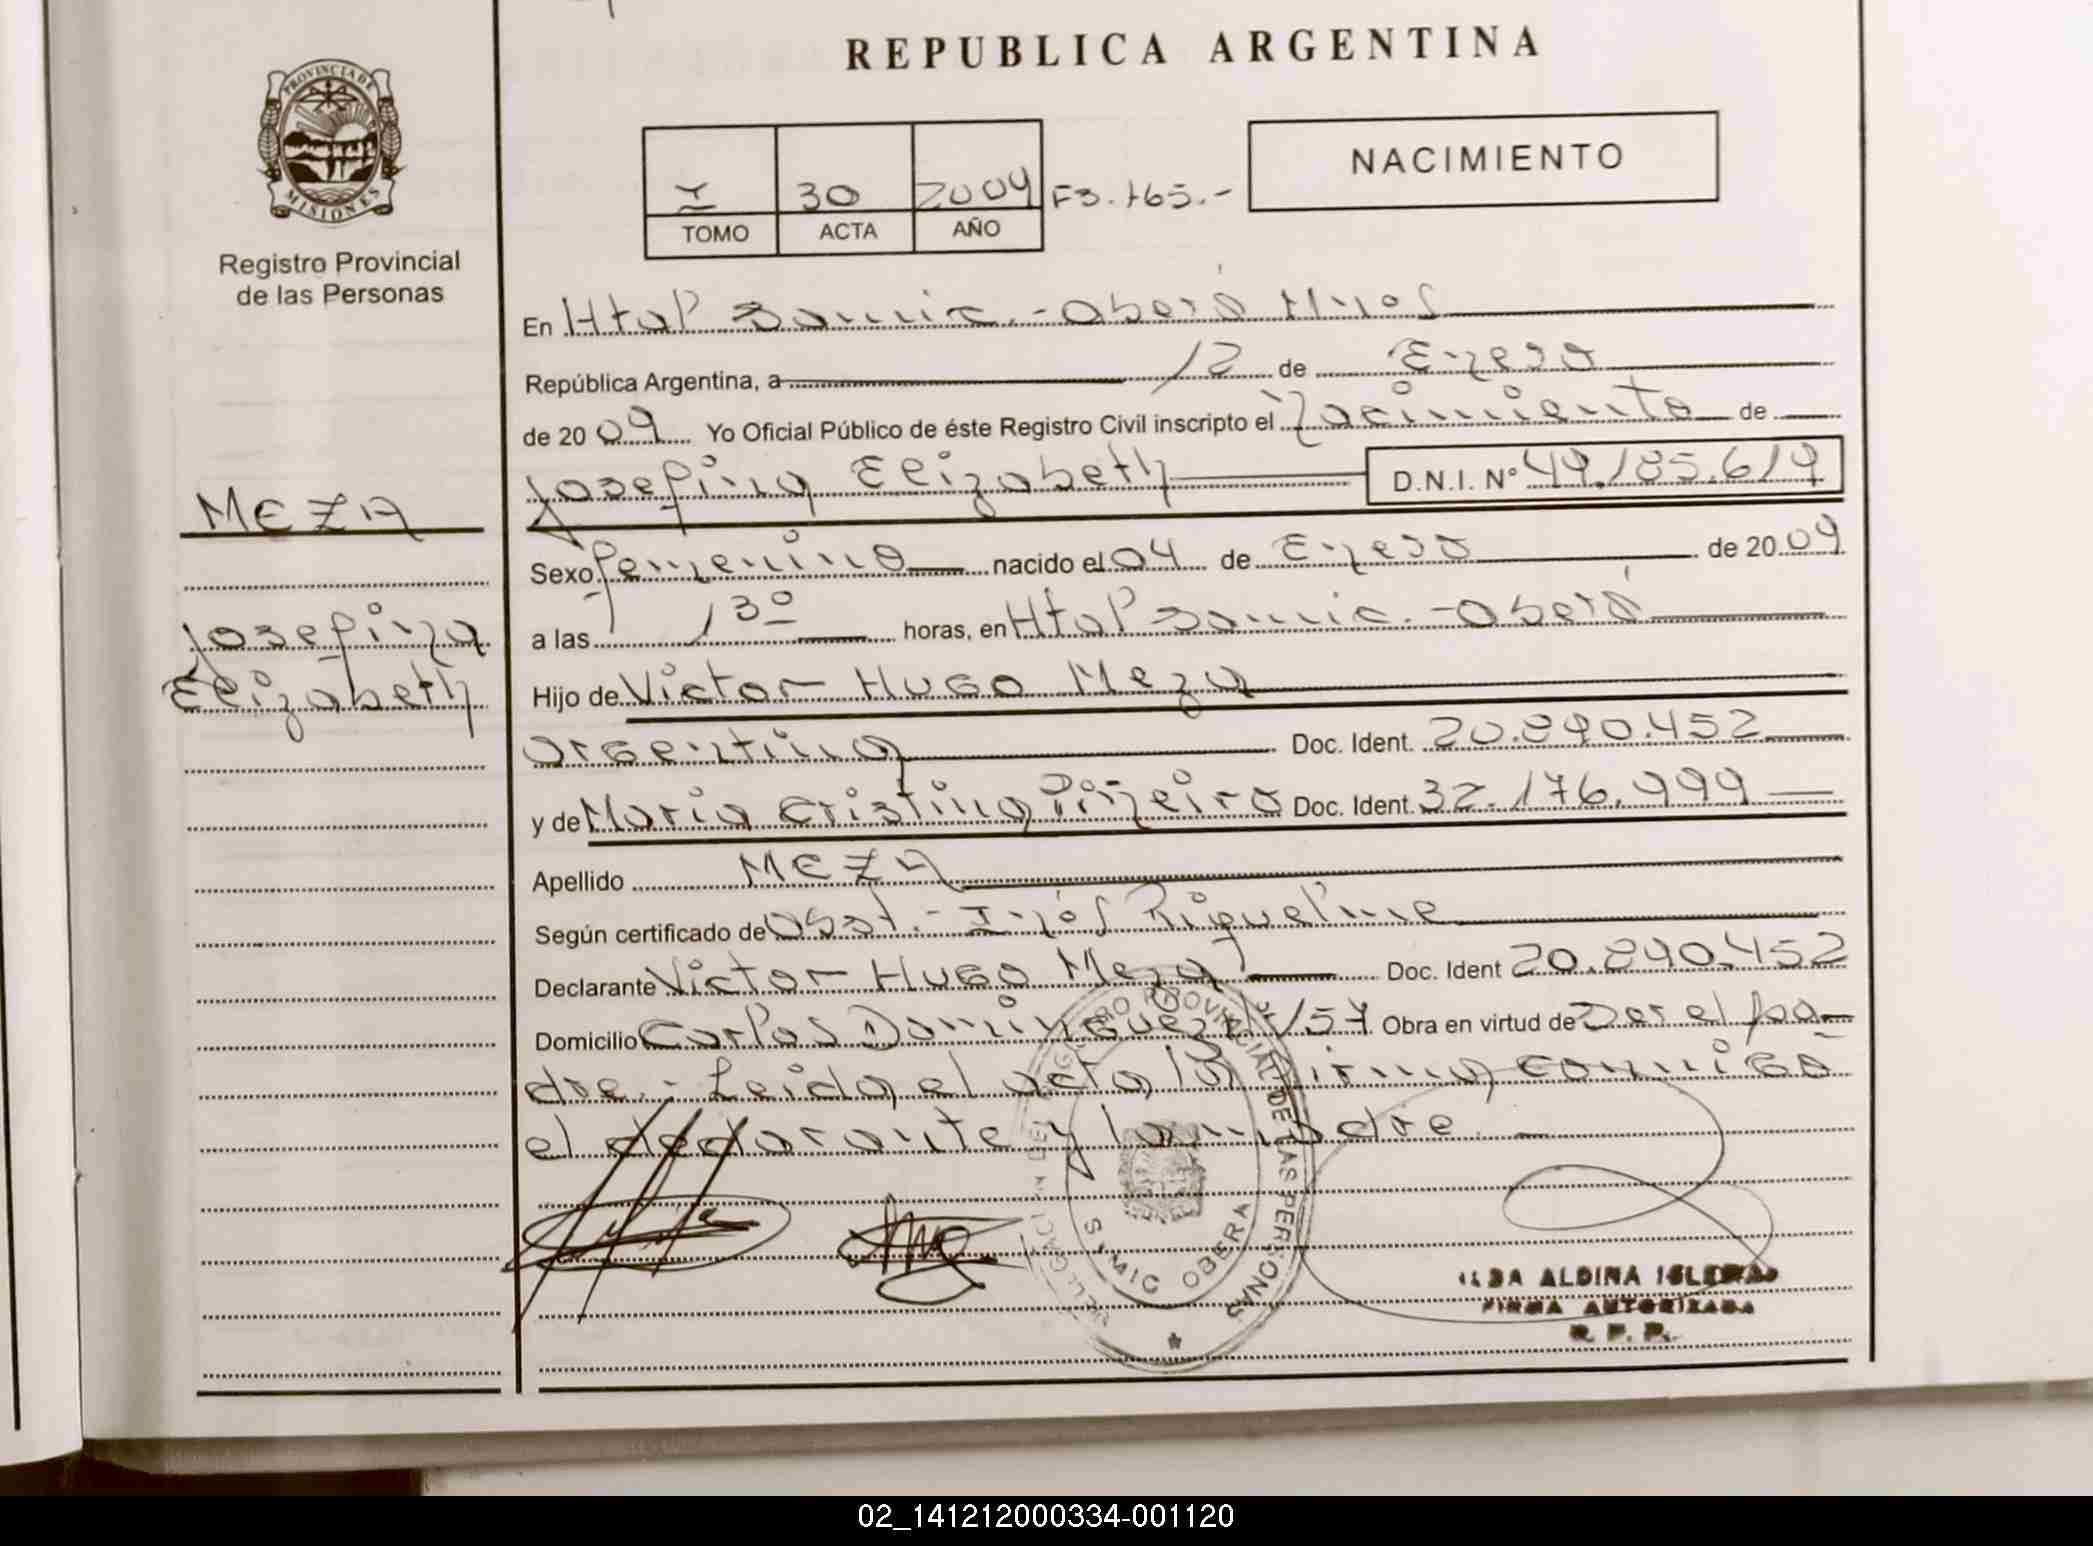 REPUBLICA ARGENTINA
PROVINCIA DE
MISIONES
Registro Provincial
de las Personas
NACIMIENTO
I 30 2009 F3.165.-
TOMO ACTA AÑO
En Htal Samic.-Oberá Mnes
República Argentina, a 12 de Enero
de 2009 Yo Oficial Público de éste Registro Civil inscripto el Nacimiento de
Josefina Elizabeth D.N.I. Nº 49.185.619
MEZA
Josefina
Elizabeth
Sexo femenino nacido el 04 de Enero de 2009
a las 13º horas, en Htal Samic.-Oberá
Hijo de Victor Hugo Meza
argentina Doc. Ident. 20.890.452
y de Maria Cristina Piñeiro Doc. Ident. 32.176.999
Apellido MEZA
Según certificado de Obst.- Inés Riquelme
Declarante Victor Hugo Meza Doc. Ident 20.890.452
Domicilio Carlos Dominguez Obra en virtud de Ser el pa-
dre.- Leida el acta la firma conmigo
el declarante y la madre.-
REGISTRO PROVINCIAL DE LAS PERSONAS
SAMIC OBERA
ALDINA
FIRMA AUTORIZADA
R. P. P.
02_141212000334-001120